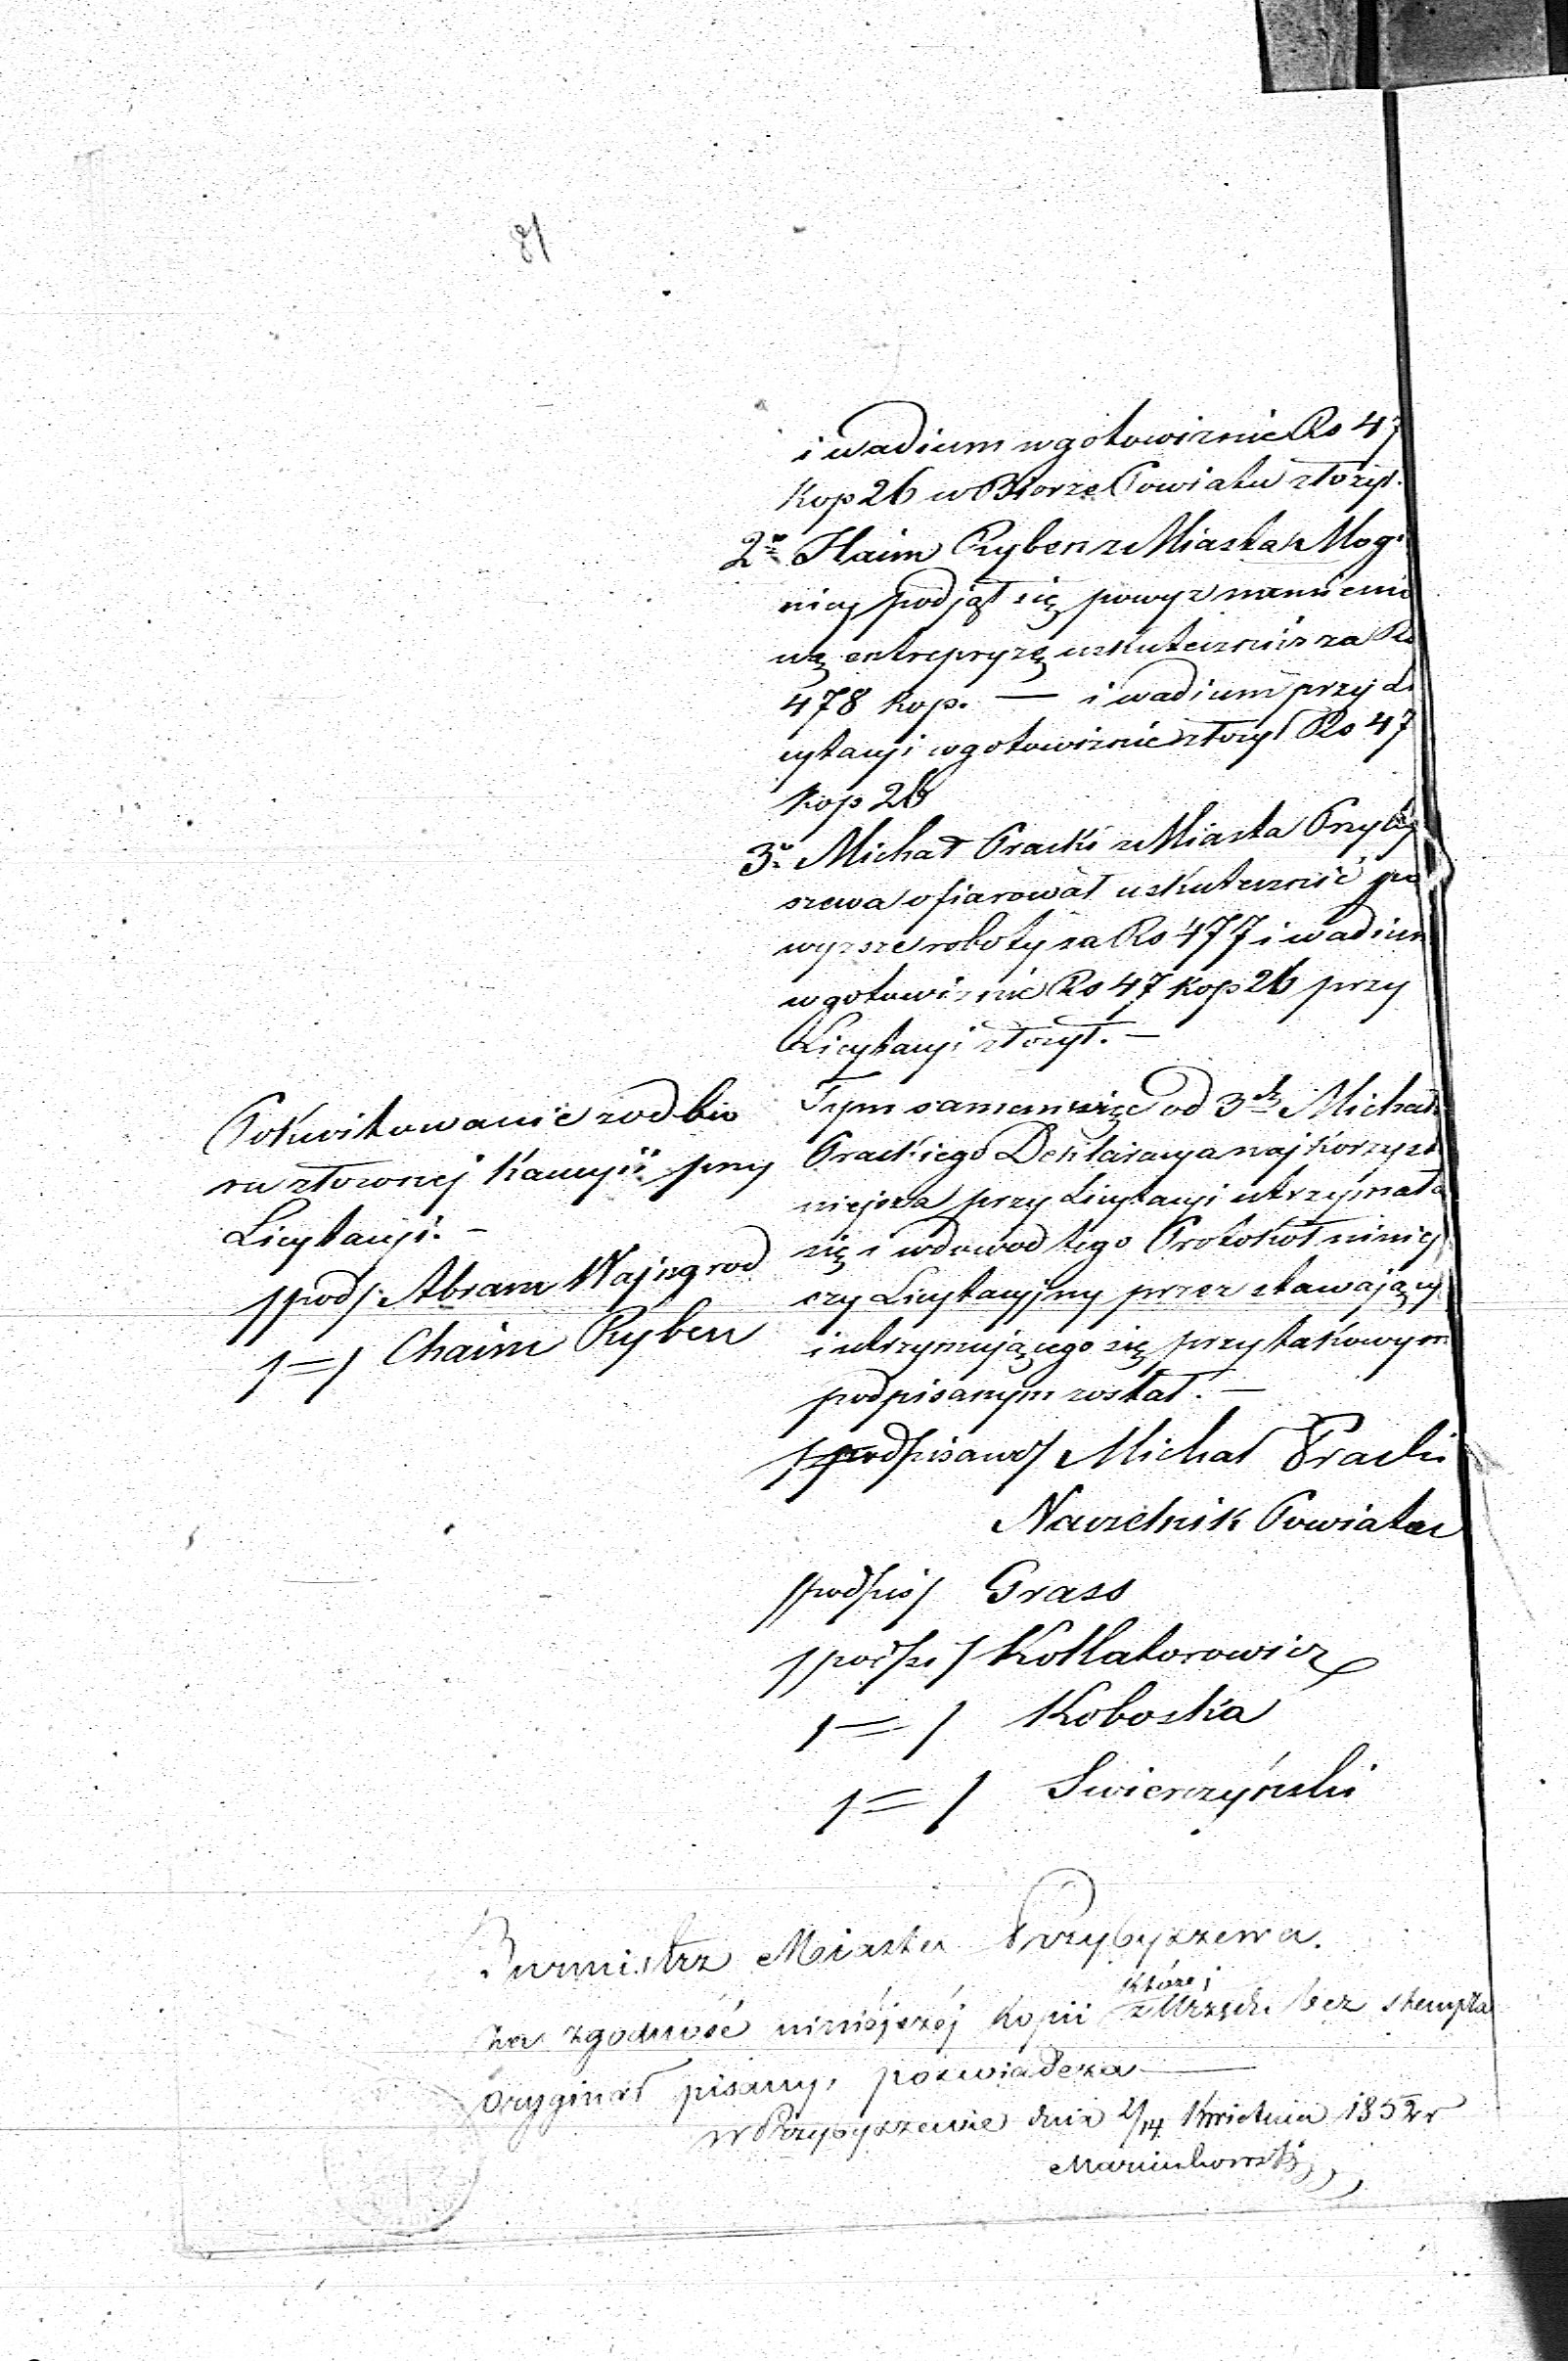 81
i wadium w gotowiznie Rs 47
Kop 26 w Biorze Powiatu złożył.
2o Haim Ryben z Miasta Mogi
nicy podjął się powyż wmienio
ną entrepryzę uskutecznić za Rs
478 kop. — i wadium przy Li
cytacyi w gotowiznie złożył Rs 47
kop 26
3o Michał Pracki z Miasta Przyby
szewa ofiarował uskutecznić po
wyższe roboty za Rs 477 i wadium
w gotowiznie Rs 47 kop 26 przy
Licytacyi złożył. —
Tym samem więc od 3ch Michała
Prackiego Deklaracya najkorzyst
niejsza przy Licytacyi utrzymała
się i w dowód tego Protokół niniej
szy Licytacyjny przez stawający
i utrzymującego się przy takowym
podpisanym został. —
/podpisano/ Michał Pracki
Naczelnik Powiatu
/podpis/ Grass
/podpis/ Kotlatorowicz
/=/ Koboska
/=/ Swierczyński
Pokwitowanie z odbio
ru złożonej Kaucyi przy
Licytacyi. —
/pod/ Abram Wajngrod
/=/ Chaim Ryben
Burmistrz Miasta Przybyszewa.
za zgodność niniéjszéj kopii z Urzęd. bez stempla
której
oryginał pisany, poświadcza —
w Przybyszewie dnia 2/14 Kwietnia 1852 r